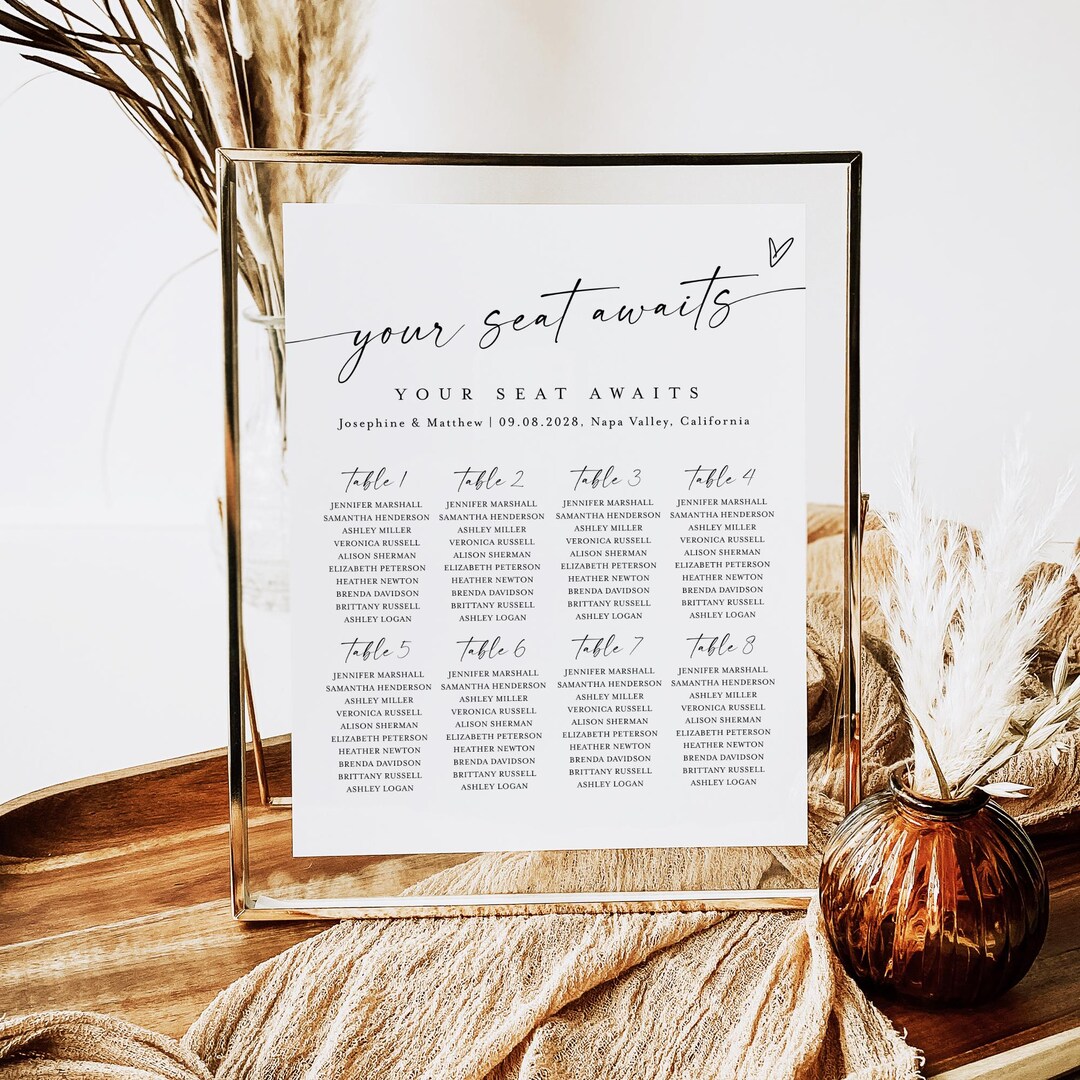 your seat awaits
YOUR SEAT AWAITS
Josephine & Matthew | 09.08.2028, Napa Valley, California
Table 1
JENNIFER MARSHALL
SAMANTHA HENDERSON
ASHLEY MILLER
VERONICA RUSSELL
ALISON SHERMAN
ELIZABETH PETERSON
HEATHER NEWTON
BRENDA DAVIDSON
BRITTANY RUSSELL
ASHLEY LOGAN
Table 2
JENNIFER MARSHALL
SAMANTHA HENDERSON
ASHLEY MILLER
VERONICA RUSSELL
ALISON SHERMAN
ELIZABETH PETERSON
HEATHER NEWTON
BRENDA DAVIDSON
BRITTANY RUSSELL
ASHLEY LOGAN
Table 3
JENNIFER MARSHALL
SAMANTHA HENDERSON
ASHLEY MILLER
VERONICA RUSSELL
ALISON SHERMAN
ELIZABETH PETERSON
HEATHER NEWTON
BRENDA DAVIDSON
BRITTANY RUSSELL
ASHLEY LOGAN
Table 4
JENNIFER MARSHALL
SAMANTHA HENDERSON
ASHLEY MILLER
VERONICA RUSSELL
ALISON SHERMAN
ELIZABETH PETERSON
HEATHER NEWTON
BRENDA DAVIDSON
BRITTANY RUSSELL
ASHLEY LOGAN
Table 5
JENNIFER MARSHALL
SAMANTHA HENDERSON
ASHLEY MILLER
VERONICA RUSSELL
ALISON SHERMAN
ELIZABETH PETERSON
HEATHER NEWTON
BRENDA DAVIDSON
BRITTANY RUSSELL
ASHLEY LOGAN
Table 6
JENNIFER MARSHALL
SAMANTHA HENDERSON
ASHLEY MILLER
VERONICA RUSSELL
ALISON SHERMAN
ELIZABETH PETERSON
HEATHER NEWTON
BRENDA DAVIDSON
BRITTANY RUSSELL
ASHLEY LOGAN
Table 7
JENNIFER MARSHALL
SAMANTHA HENDERSON
ASHLEY MILLER
VERONICA RUSSELL
ALISON SHERMAN
ELIZABETH PETERSON
HEATHER NEWTON
BRENDA DAVIDSON
BRITTANY RUSSELL
ASHLEY LOGAN
Table 8
JENNIFER MARSHALL
SAMANTHA HENDERSON
ASHLEY MILLER
VERONICA RUSSELL
ALISON SHERMAN
ELIZABETH PETERSON
HEATHER NEWTON
BRENDA DAVIDSON
BRITTANY RUSSELL
ASHLEY LOGAN